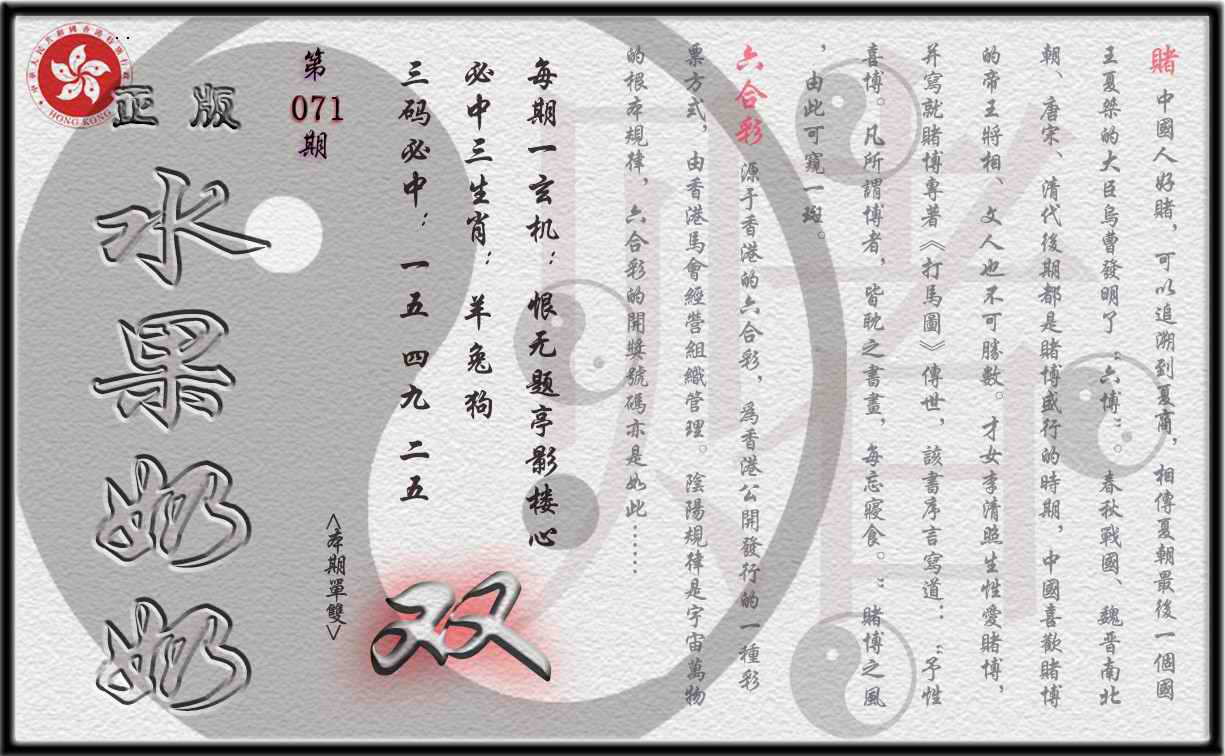 賭 中國人好賭，可以追溯到夏商，相傳夏朝最後一個國
王夏桀的大臣烏曹發明了“六博”。春秋戰國、魏晋南北
朝、唐宋、清代後期都是賭博盛行的時期，中國喜歡賭博
的帝王將相、文人也不可勝數。才女李清照生性愛賭博，
并寫就賭博專著《打馬圖》傳世，該書序言寫道：“予性
喜博。凡所謂博者，皆耽之書畫，每忘寢食。”賭博之風
，由此可窺一斑。
六合彩 源于香港的六合彩，爲香港公開發行的一種彩
票方式，由香港馬會經營組織管理。陰陽規律是宇宙萬物
的根本規律，六合彩的開獎號碼亦是如此……
每期一玄机：恨无题亭影楼心
必中三生肖：羊兔狗
三码必中：一五 四九 二五
双
<本期單雙>
第
071
期
正版
水果奶奶
中華人民共和國香港特別行政區
HONG KONG